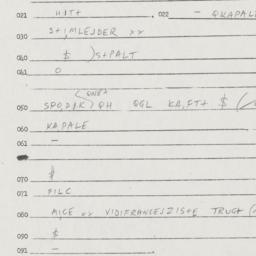 021 HIT+ 022 - QKAPAL
030 S+;MLEJDER xx
040 $ )S+PALT
041 0
050 SPO,D;K) QH QGL KA,FT+ $ (
060 KAPALE
061 -
070 $
071 FILC
080 MICE xx VIDIFRANCEJZIS+E TRUG+
090 $
091 -